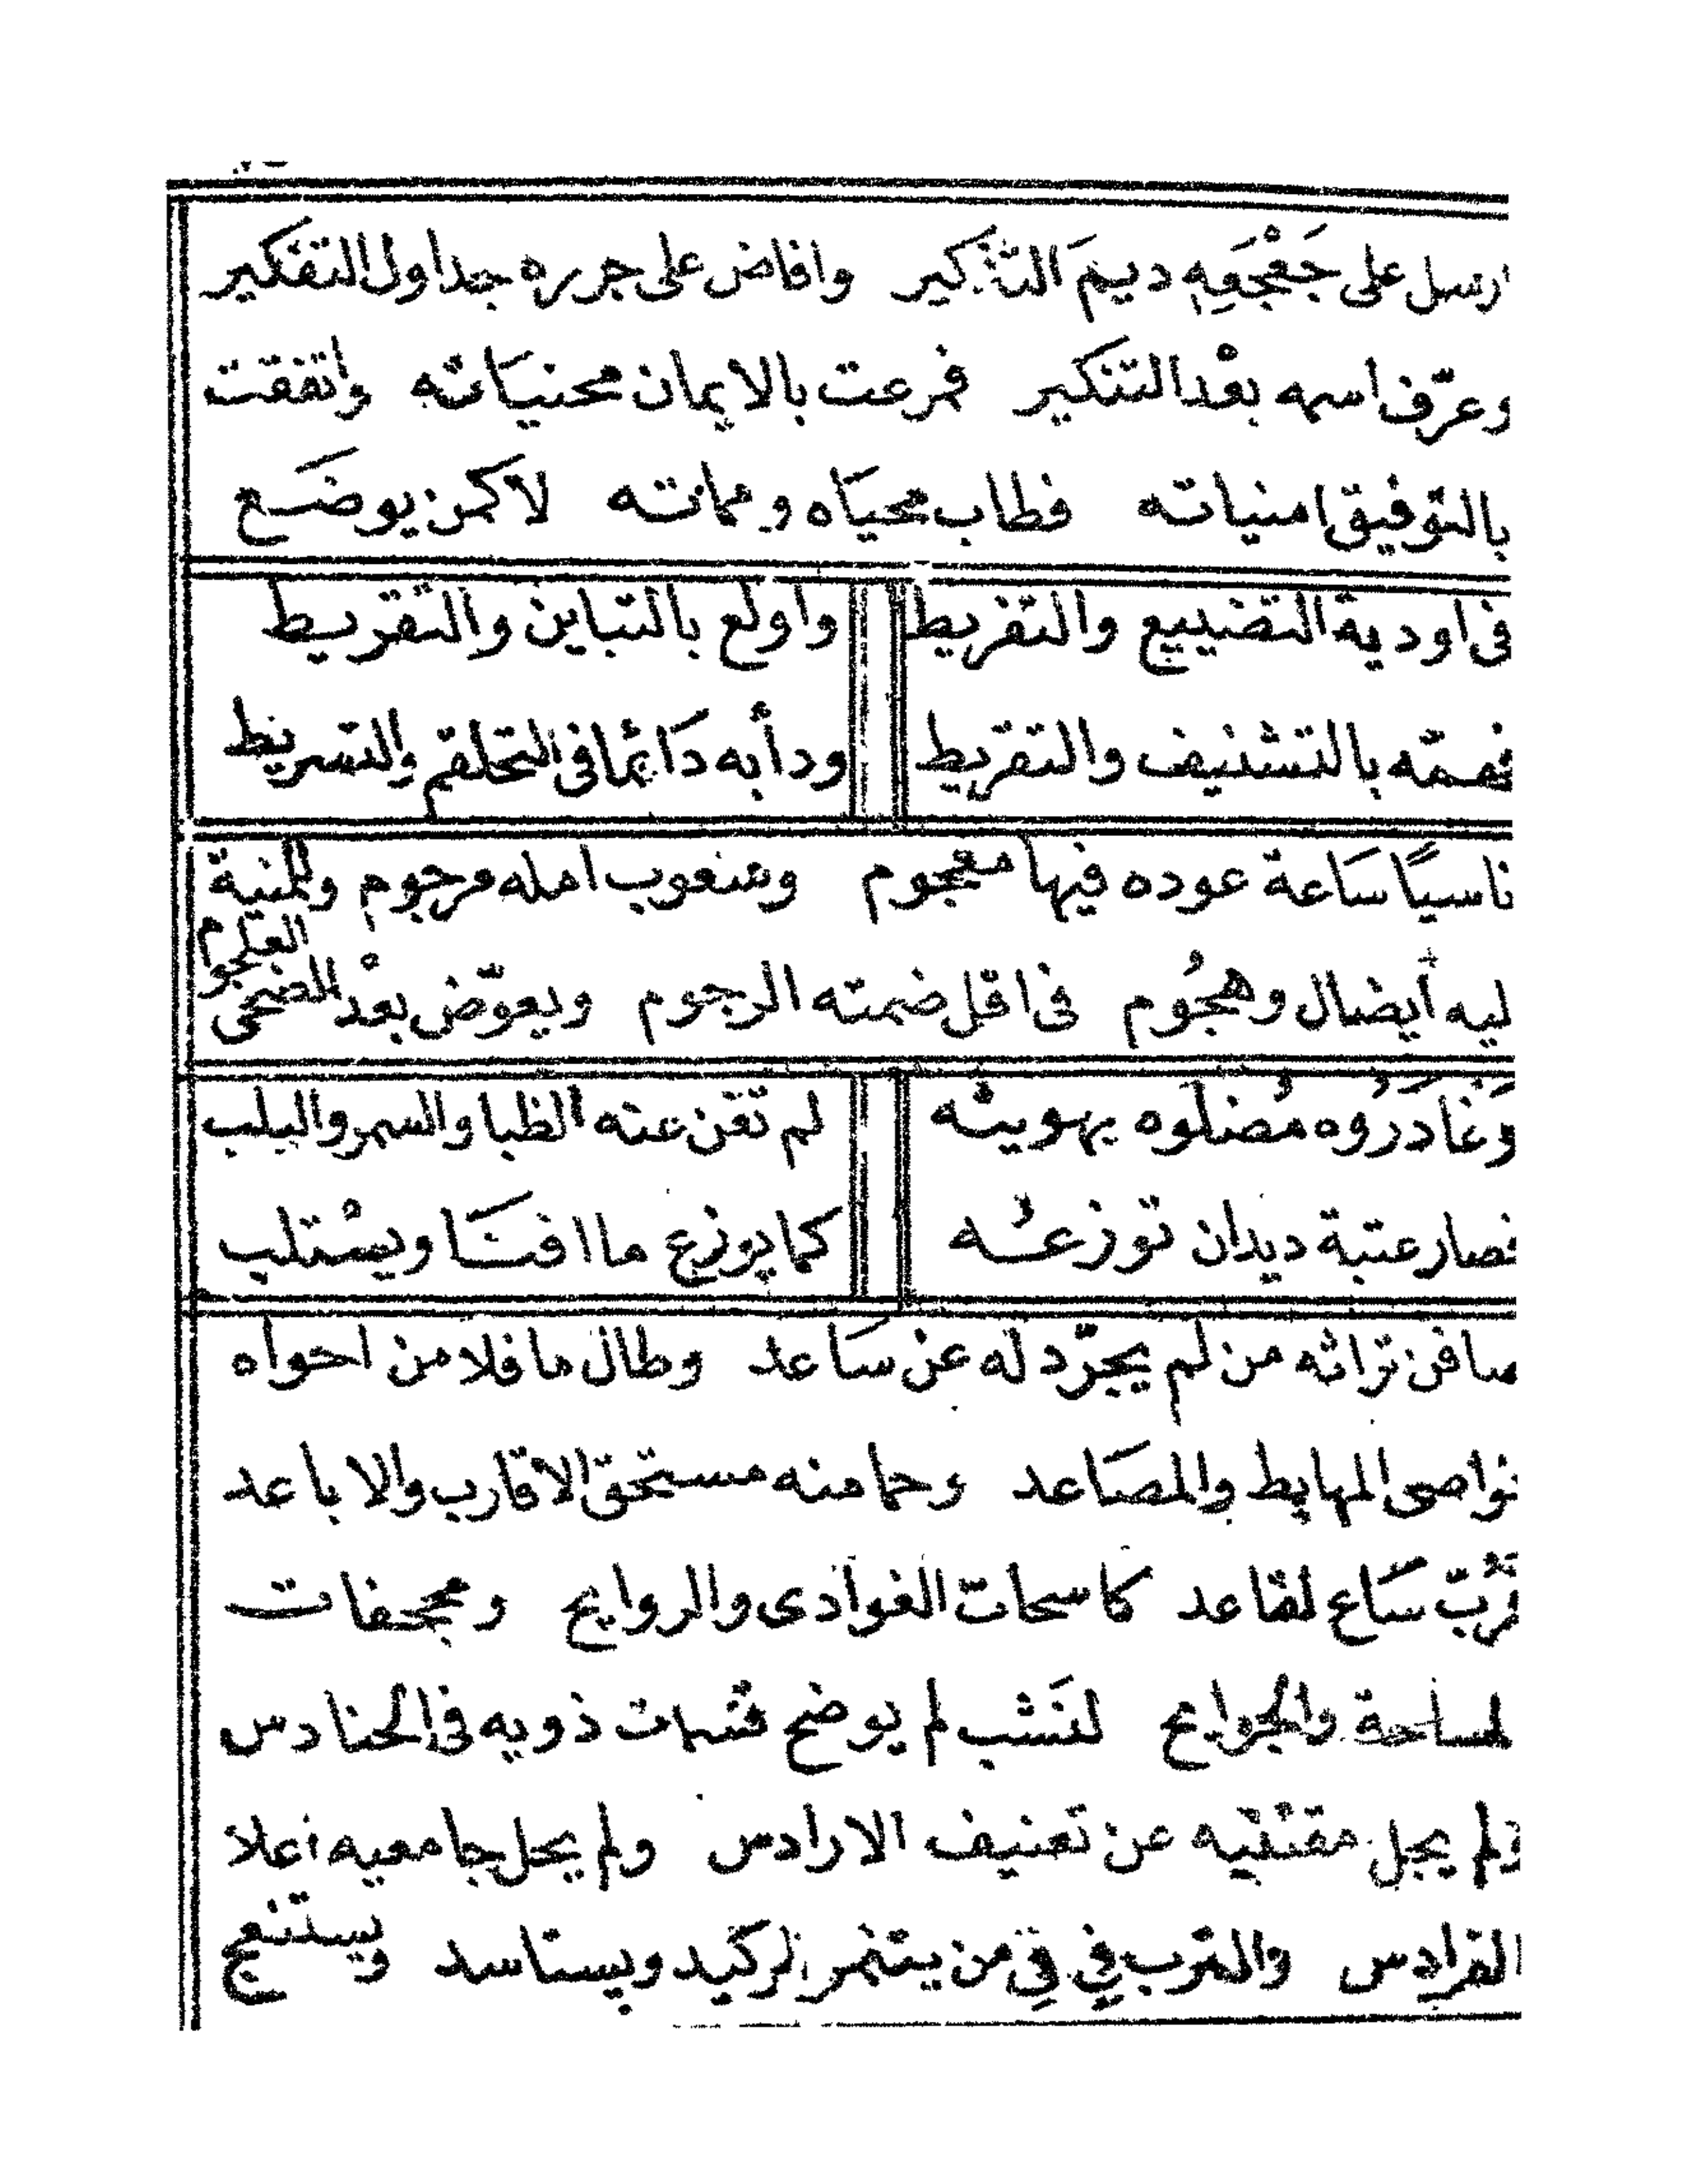 ارسل على جَعْجَعِهِ ديمَ التّذكير وافاض على جرره جداول التفكير
وعرّف اسمه بعْد التنكير فمرعت بالايمان محنيَاته واتفقت
بالتّوفيق امنياته فطاب محيَاه ومماته لا كمن يوضَع
فى اودية التضييع والتفريط واولع بالتباين والتّقريط
فهمّه بالتشنيف والتقريط ودأبه دَائما فى التحلقم والتسريط
ناسيًا سَاعة عوده فيها معجوم وشعوب امله مرجوم وللمنية
ليه أيضال وهجُوم فى اقل ضمته الرجوم ويعوّض بعْد الضحى العلجوم
وَغَادَرُوه مُضلَوه بهويته لم تغن عنه الظبا والسمر واليلب
فصار عتبة ديدان توزعُه كما يوزع ما افنَا ويسْتلب
صافن تراثه من لم يجرّد له عن سَاعد وطال ما فلا من احواه
نواصى المهابط والمصَاعد وحما منه مستحق الاقارب والاباعد
فرُبّ سَاع لقاعد كاسحات الغوادى والروايح ومجحفات
لمساحة والجوايح لنَشب لم يوضح قسمات ذويه فى الحنادس
ولم يجل مقتنيه عن تعنيف الارادس ولم يحل جامعيه اعلا
الفرادس والترب فِي فِي من يتنمر لركيد ويستاسد ويستنعج